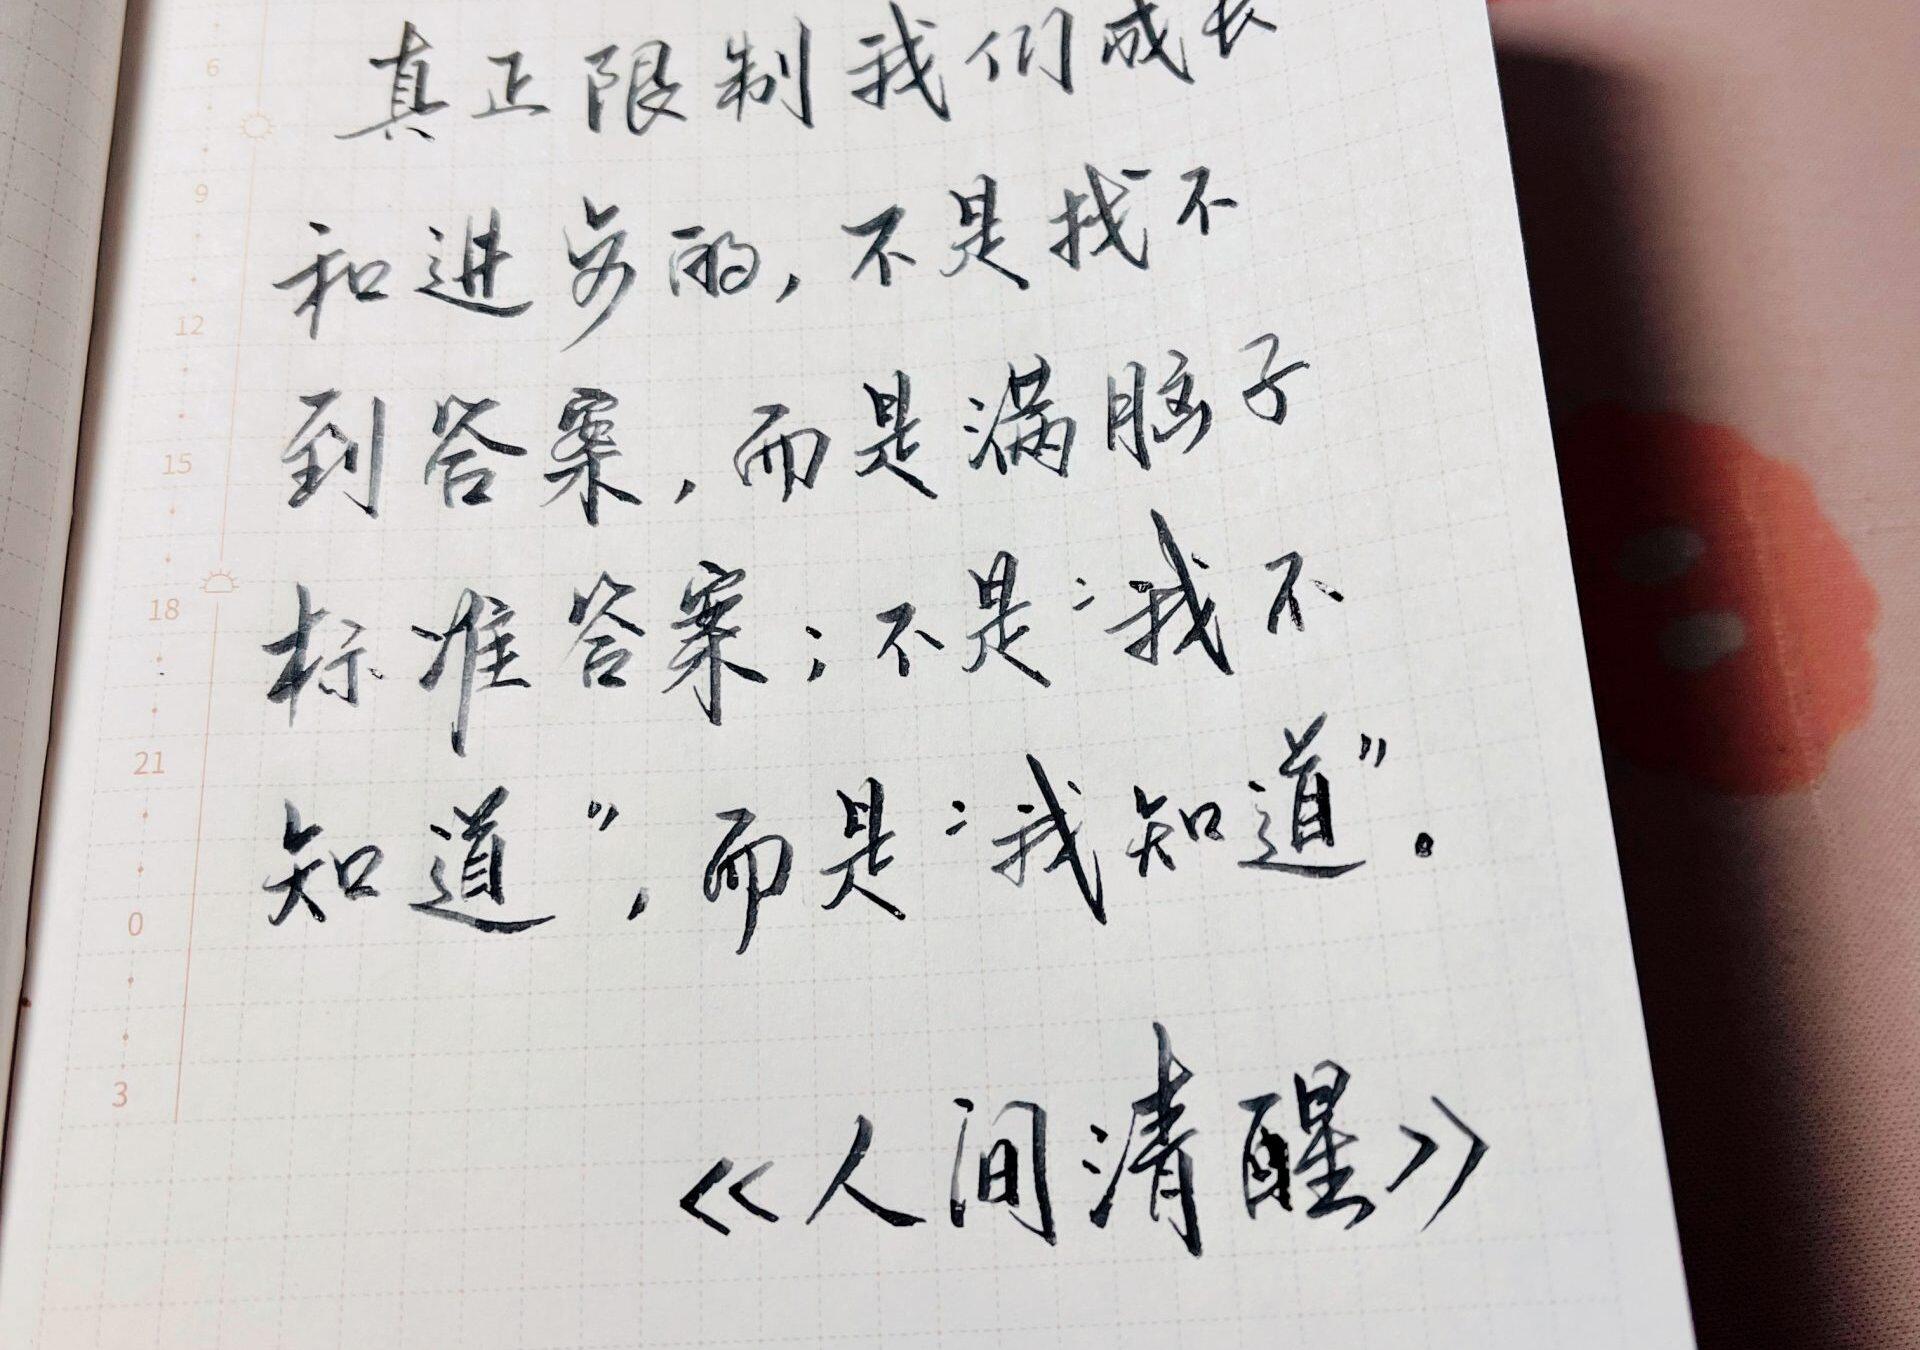 6
9
12
15
18
21
0
3
真正限制我们成长
和进步的,不是找不
到答案,而是满脑子
标准答案;不是“我不
知道”,而是“我知道”.
《人间清醒》